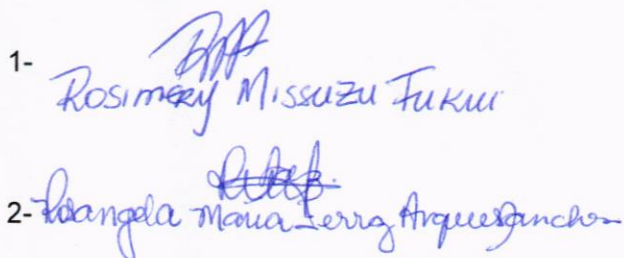 1-
Rosimery Missuzu Fukui
2- Rosangela Maria Ferraz Arques